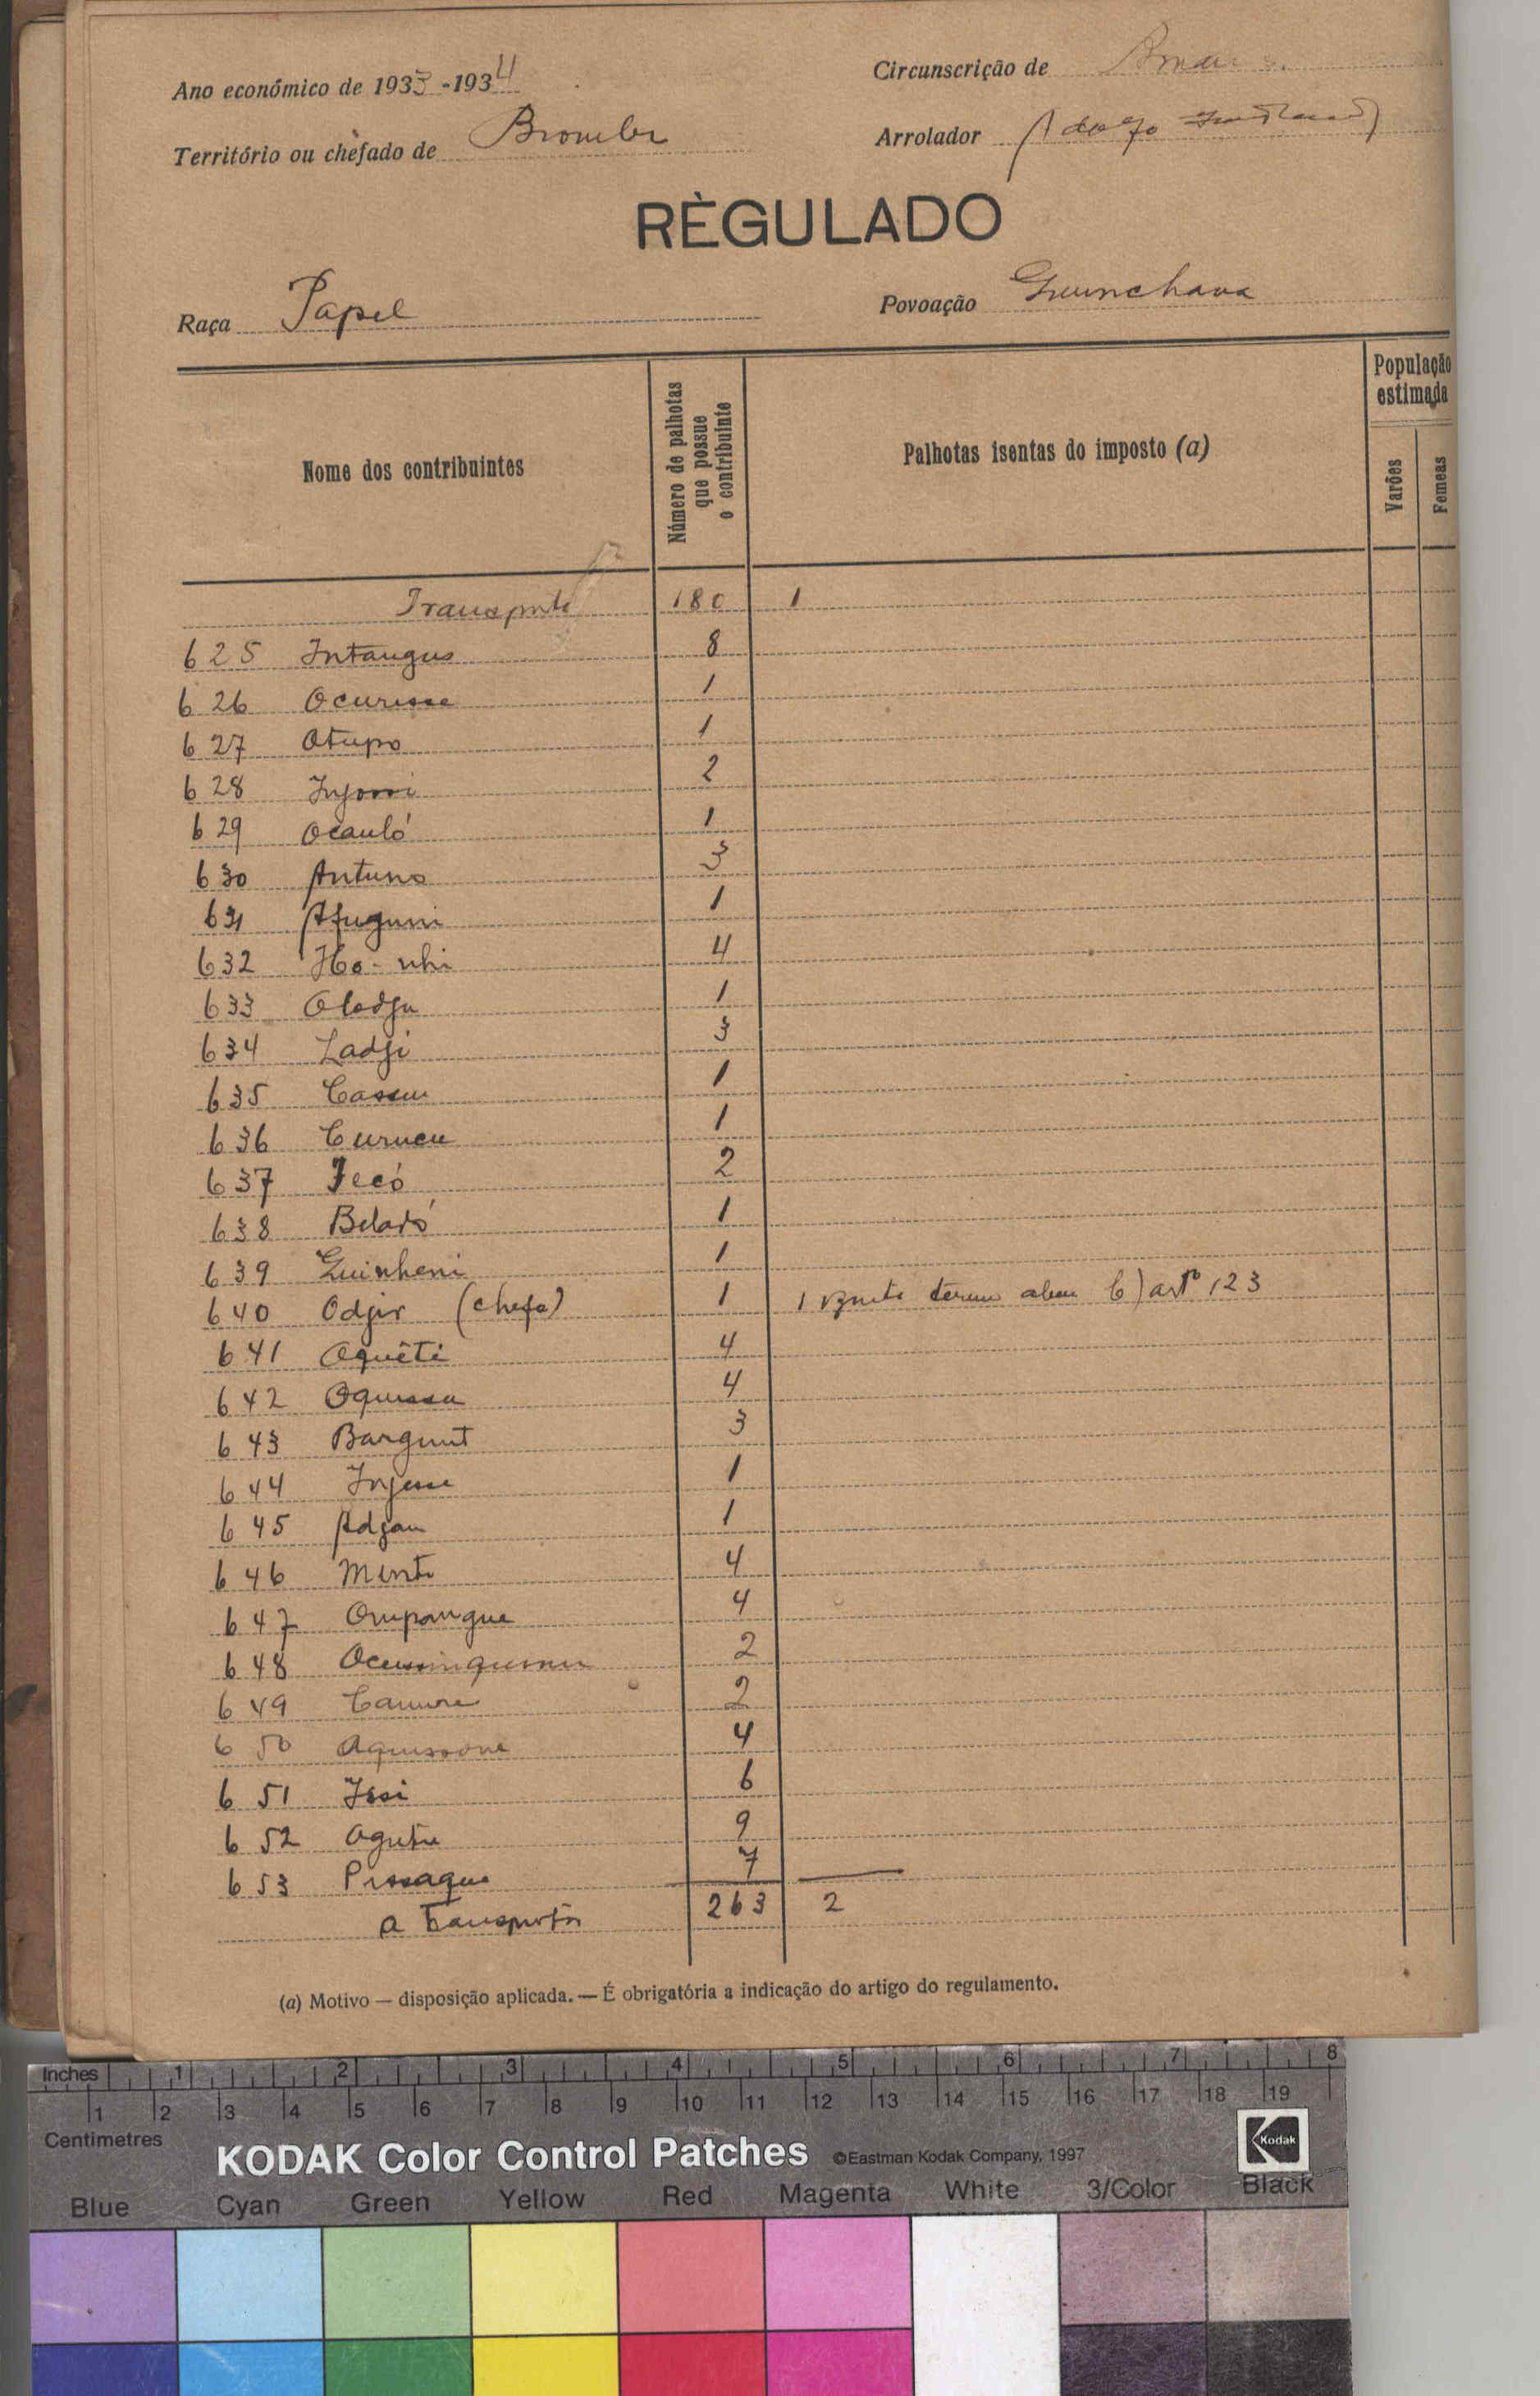 Ano económico de 1933-1934
Circunscrição de
Território ou chèfado de
Arrolador Adolfo
RÈGULADO
Raça Papel
Povoação Guinchava
Nome dos contribuintes
Número de palhotas que possue o contribuinte
Palhotas isentas do imposto (a)
População estimada
Varões
Femeas
Transporte 180 1
625 Intangus 8
626 Ocurisse 1
627 Otupo 1
628 2
629 Ocauló 1
630 Antuno 3
631 1
632 Ho-nhi 4
633 Oladju 1
634 Ladji 3
635 Cassu 1
636 Curucu 1
637 Jecó 2
638 1
639 Guinheni 1
640 Odjir (chefe) 1 1 artº 123
641 Oquêti 4
642 Oquissa 4
643 3
644 Injesse 1
645 Adjau 1
646 4
647 Ompangue 4
648 2
649 2
650 4
651 Issi 6
652 9
653 Pissaque 7
A Transportar 263 2
(a) Motivo — disposição aplicada. — É obrigatória a indicação do artigo do regulamento.
Inches 1 2 3 4 5 6 7 8
1 2 3 4 5 6 7 8 9 10 11 12 13 14 15 16 17 18 19
Centimetres
KODAK Color Control Patches ©Eastman Kodak Company, 1997 Kodak
Blue Cyan Green Yellow Red Magenta White 3/Color Black